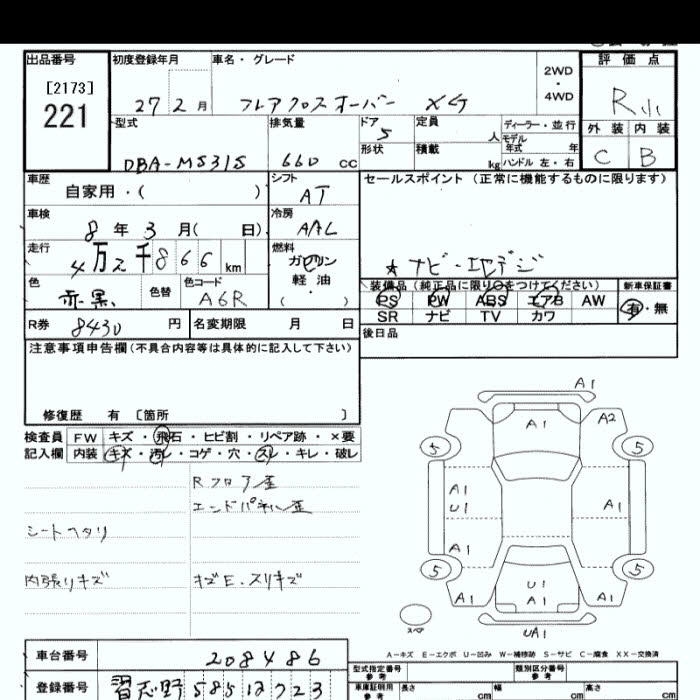 出品番号 初度登録年月 車名・グレード 評価点
[2173]
221
27 2月 フレアクロスオーバー XG
2WD
・
4WD
R小
型式 排気量 ドア 定員 ディーラー・並行 外装 内装
DBA-MS31S 660 cc 5 人 モデル年式 年
形状 積載 kg ハンドル 左・右 C B
車歴 シフト セールスポイント (正常に機能するものに限ります)
自家用・( ) AT
車検 冷房
8年 3月( 日) AAC
走行 燃料
4万2千866km ガソリン
軽油
( ・ )
★ナビ・エセデジ
色 色替 色コード
赤黒 A6R
装備品(純正品に限り○をつけてください) 新車保証書
PS PW ABS エアB AW 有・無
SR ナビ TV カワ
R券 8430 円 名変期限 月 日 後日品
注意事項申告欄(不具合内容等は具体的に記入して下さい)
修復歴 有 〔箇所 〕
検査員 FW キズ・飛石・ヒビ割・リペア跡・×要
記入欄 内装 キズ・汚レ・コゲ・穴・スレ・キレ・破レ
Rフロア歪
エンドパネル歪
シートヘタリ
内張りキズ キズE.スリキズ
A1
A1 A2
5 5
A1
U1 A1
A1
5 5
A1 U1 A1
A1
スペア UA1
A-キズ E-エクボ U-凹み W-補修跡 S-サビ C-腐食 XX-交換済
車台番号 208486
型式指定番号 参考 類別区分番号 参考
登録番号 習志野 585 12 723
車庫証明用 参考 長さ cm 幅 cm 高さ cm